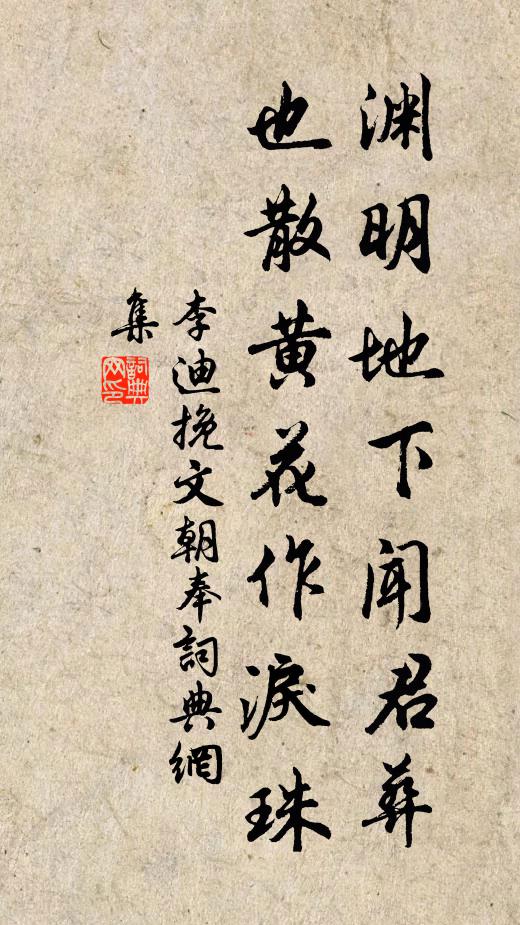 渊明地下闻君葬
也散黄花作淚珠
李迪挽文朝奉詞典網
集
詞典
网印